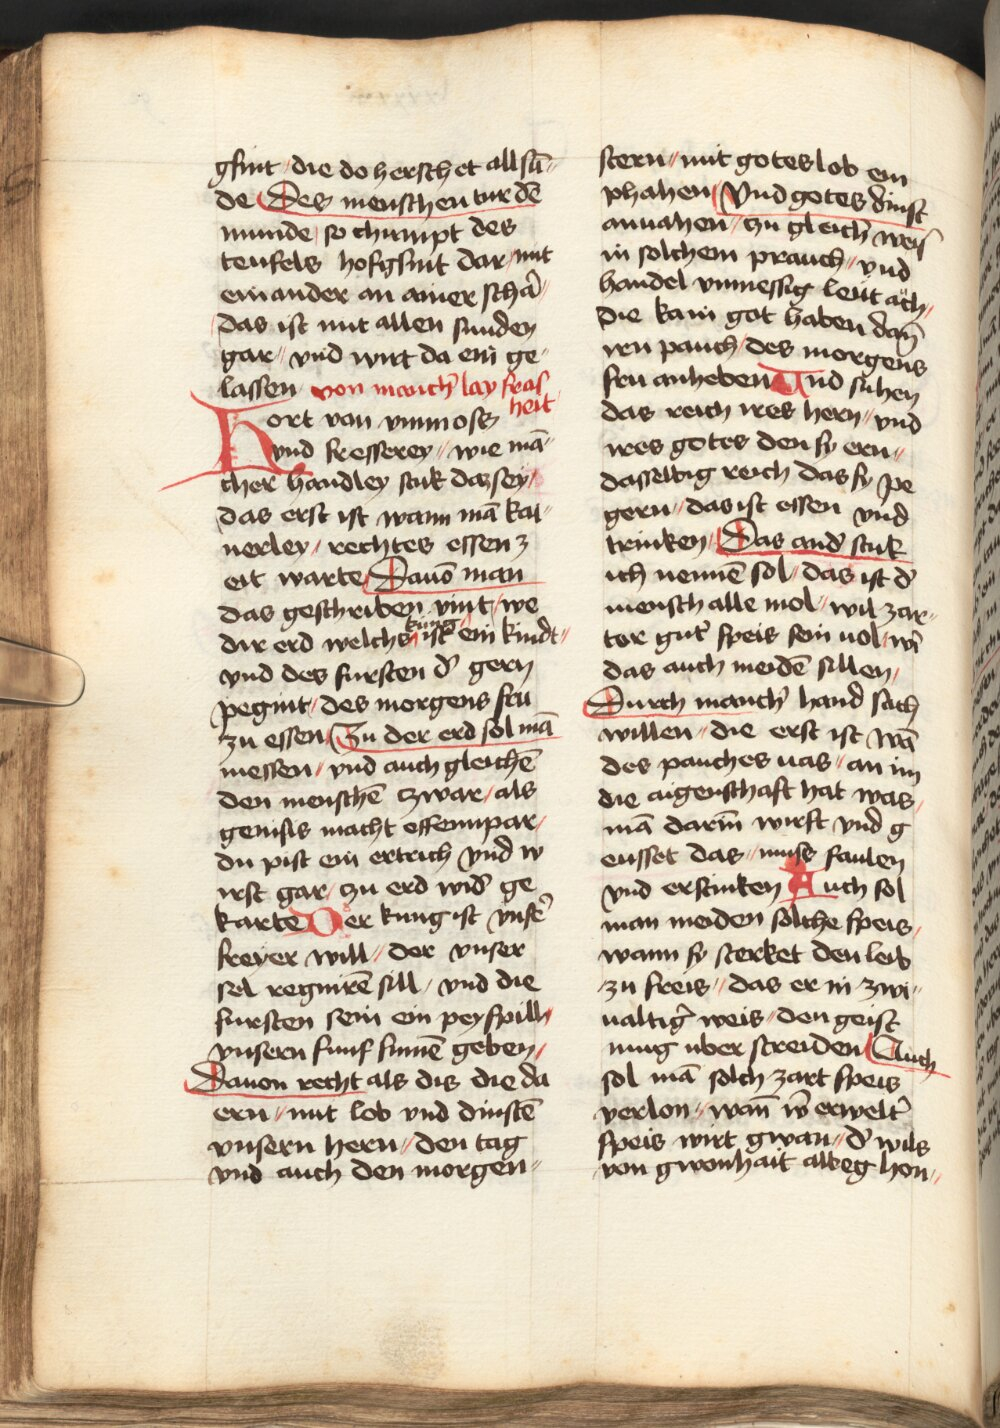 gsint / die do herschet all sũ⸗
de Des menschen wirdẽ
munde / so chumpt des
teufels hofgsint dar / mit
einander an ainer schar̃ /
das ist mit allen sunden
gar / vnd wirt da ein ge⸗
lassen von manch̃ lay fras
heit
Hort von vnmoss
vnd fresserey / wie mã⸗
cher handley stuk da sey /
das erst ist wann mã kai⸗
nerley / rechtes essen z
eit warte Dauõ man
das geschriben vint / we
kunig
dir erd welchs ist ein kindt⸗
vnd des fursten d̃ gern
pegint / des morgens fru
zu essen Zu der erd sol mã
messen / vnd auch gleichẽ
den menschẽ zwar / als
genisis macht offenwar /
du pist ein ertrich vnd w
irst gar / zu erd wid̃ ge
karte Der kung ist vnser̃
freyer will / der vnser
sel regnirẽ sill / vnd die
fursten sein ein peyspill /
vnsern funf sinnẽ geben /
Dauon recht als dis die da
ern / mit lob vnd dinstẽ
vnsern hern / den tag
vnd auch den morgen⸗
stern / mit gotes lob em
phahen Vnd gotes dinst
anuahen / zu gleich̃ weis
in solchem prauch / vnd
handel vnmessig leut ach /
die kain got haben dañ
iren pauch / des morgens
fru anheben Und suhen
das reich ires hern / vnd
ires gotes den sy ern /
dasselbig reich das sy pe
gern / das ist essen vnd
trinken Das and̃ stuk
ich nennẽ sol / das ist d̃
mensch alle mol / wil zar⸗
ter gut̃ speis sein uol / wi
das auch meidẽ sillen /
Durch manch̃ hand sach
willen / die erst ist wã
des pauches uas / an im
die aigenschaft hat was /
mã darin wirft vnd g
eusset das / muss faulen
vnd erstinken Auch sol
man meiden solche speis /
wann sy sterket den leib
zu freis / das er in zwi⸗
ualtig̃ weis / den geist
mug uber streiden Auch
sol mã solch zart speis
verlon / wañ w̃ erwelt̃
speis wirt gwan / d̃ wils
von gwonhait albeg hon /